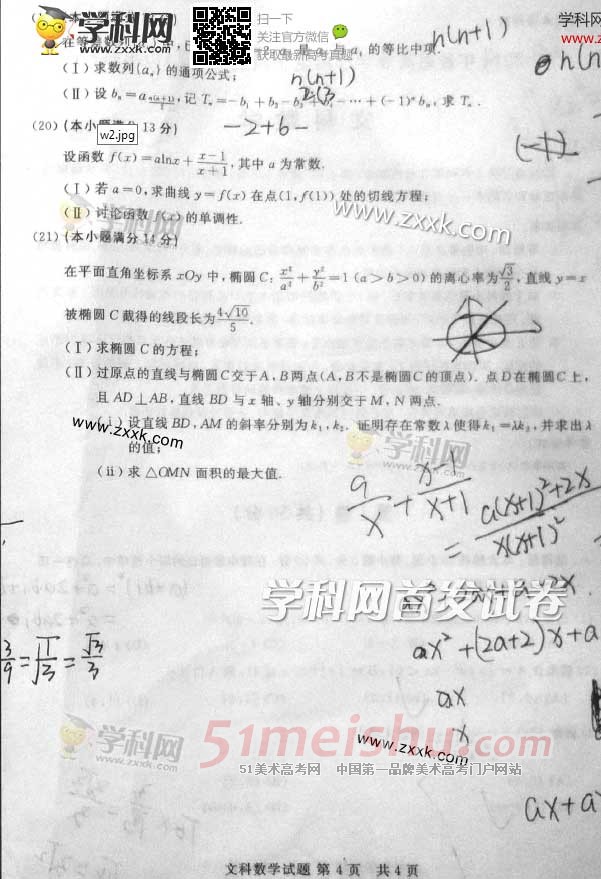 学科网
www.zxxk.com
扫一扫
关注官方微信
获取最新高考真题
学科网
www.zx
n(n+1)
的等比中项.
(Ⅰ) 求数列{aₙ} 的通项公式;
n(n+1)
(Ⅱ) 设 bₙ=a_{n(n+1)/2}, 记 Tₙ=−b₁+b₂−b₃+b₄−⋯+(−1)ⁿbₙ, 求 Tₙ.
−2+6−
(20) (本小题满分 13 分)
w2.jpg
设函数 f(x)=alnx+(x−1)/(x+1), 其中 a 为常数.
(Ⅰ) 若 a=0, 求曲线 y=f(x) 在点(1, f(1)) 处的切线方程;
(Ⅱ) 讨论函数 f(x) 的单调性.
www.zxxk.com
(21) (本小题满分 14 分)
在平面直角坐标系 xOy 中, 椭圆 C: x²/a²+y²/b²=1 (a>b>0) 的离心率为√3/2, 直线 y=x
被椭圆 C 截得的线段长为4√10/5.
(Ⅰ) 求椭圆 C 的方程;
(Ⅱ) 过原点的直线与椭圆C交于A, B两点(A, B不是椭圆C的顶点). 点D在椭圆C上,
且 AD⊥AB, 直线 BD 与 x 轴、y 轴分别交于 M, N 两点.
(ⅰ) 设直线 BD, AM 的斜率分别为 k₁, k₂. 证明存在常数 λ 使得 k₁=λk₂, 并求出 λ
www.zxxk.com
的值;
学科网
(ii) 求 △OMN 面积的最大值.
a/x + (x−1)/(x+1)
= (a(x+1)²+2x)/(x(x+1)²)
学科网首发试卷
ax²+(2a+2)x+a
3/9=√1/3=√3/3
ax
x
学科网
www.zxxk.com
51meishu.com
www.zxxk.com
51美术高考网 中国第一品牌美术高考门户网站
ax+a
文科数学试题 第 4 页 共 4 页